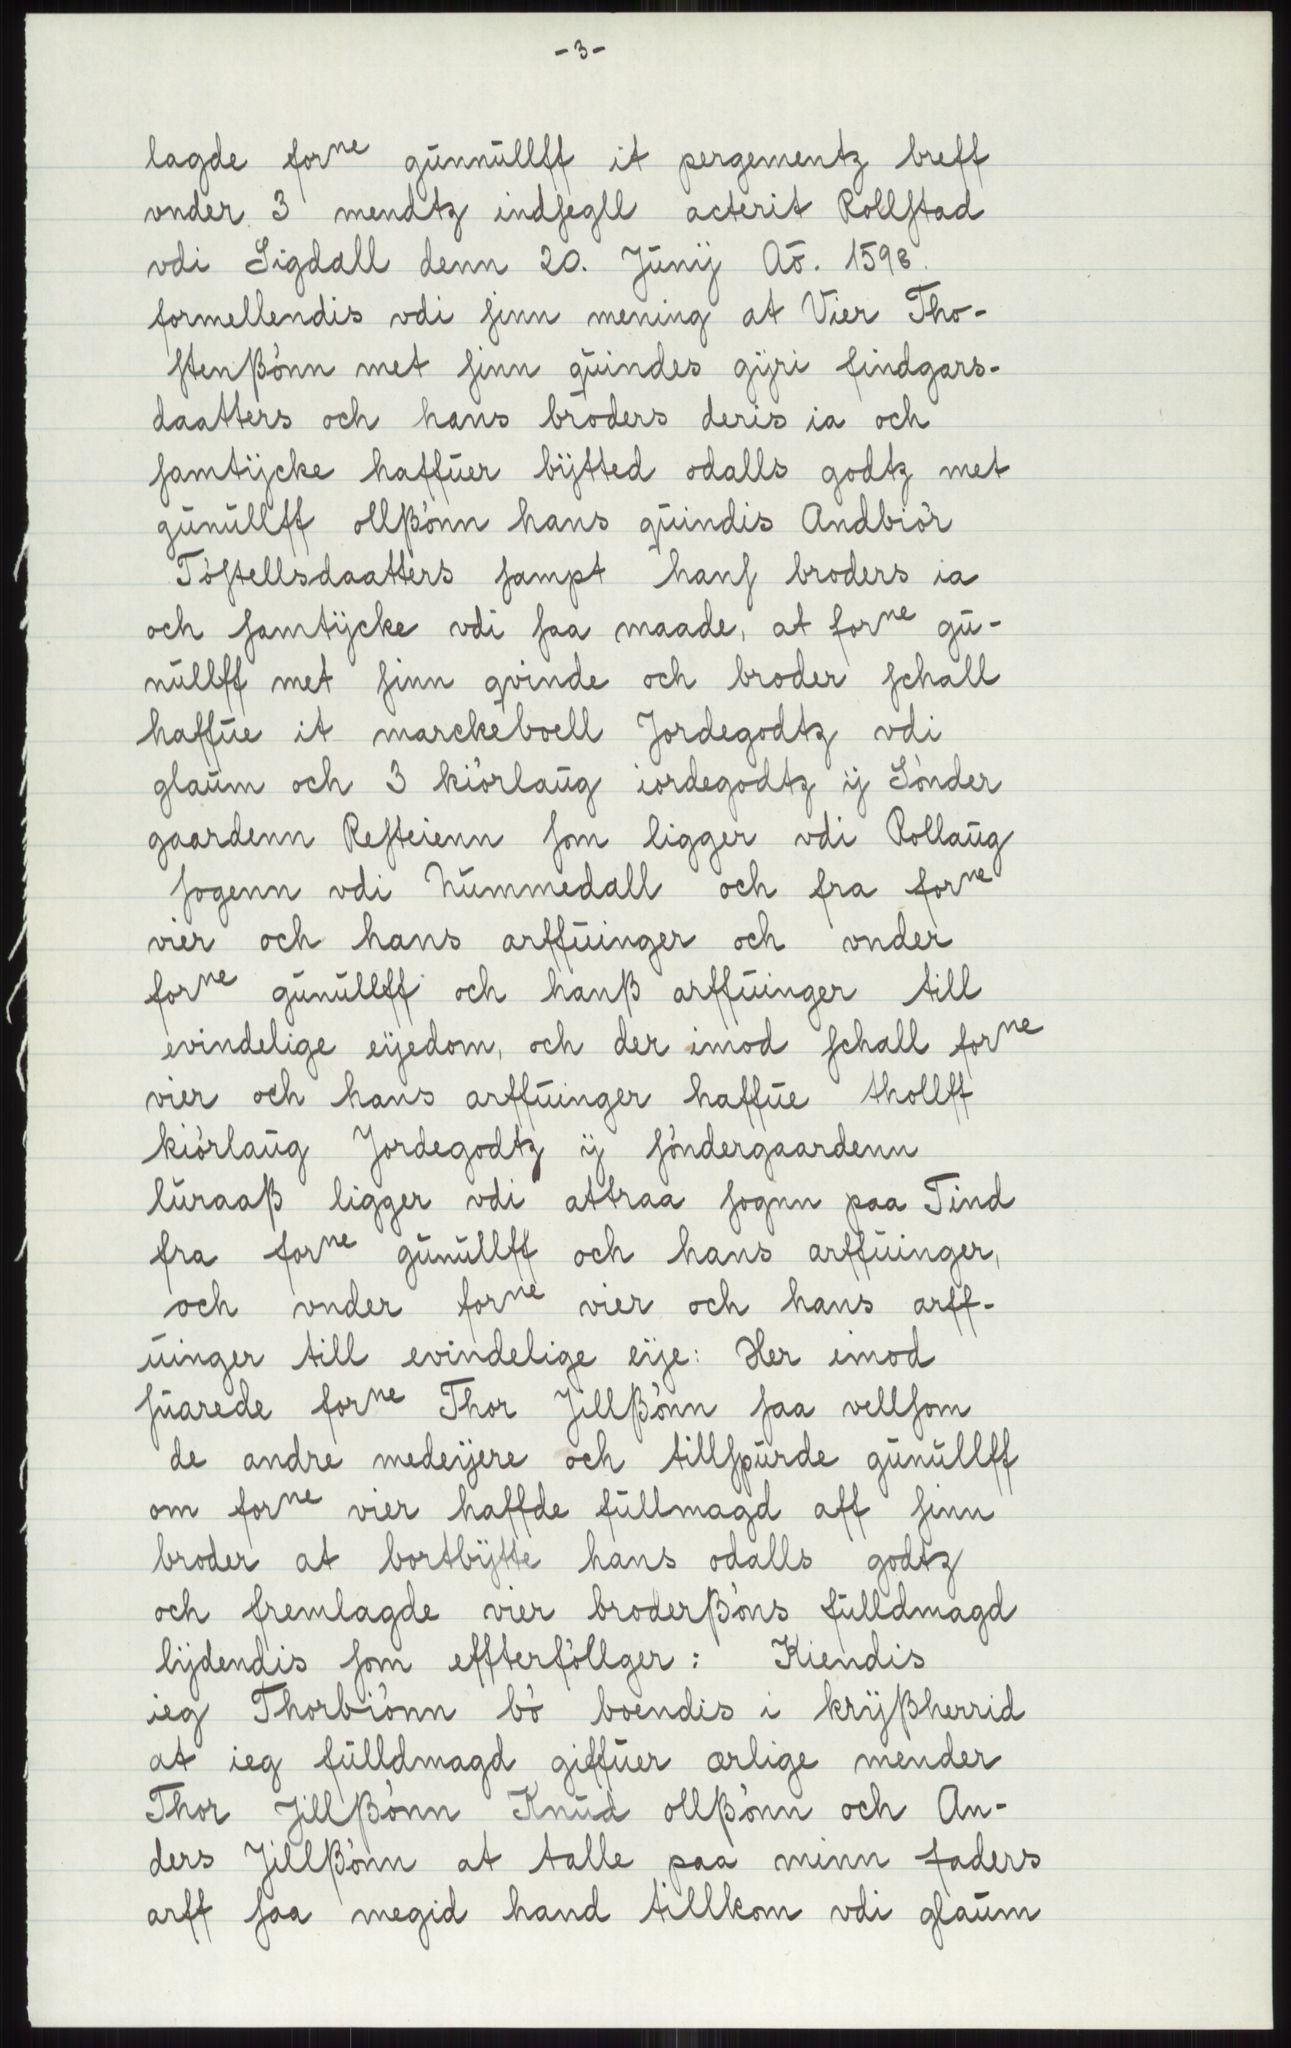 - 3 -
lagde forne gūnnūllff it pergementz breff
vnder 3 mendtz indsegll acterit Rollstad
vdi Sigdall denn 20. Jūnij Aō. 1598.
formellendis vdi sinn mening at Vier Tho-
stenßònn met sinn qūindes gÿri findgars-
daatters och hans brōders deris ia och
samtÿcke haffūer bÿtted odalls godtz met
gūnūllff ollßònn hans qūindis Andbiòr
Tòstellsdaatters sampt hans broders ia
och samtÿcke vdi saa maade, at forne gū-
nūllff met sinn qvinde och broder schall
haffūe it marckeboell Jordegodtz vdi
glaūm och 3 kiòrlaūg iordegodtz ÿ Sònder
gaardenn Resteienn som ligger vdi Rollaūg
sogenn vdi Nūmmedall och fra forne
vier och hans arffūinger och vnder
forne gūnūllff och hanß arffūinger till
evindelige eÿedom, och der imod schall forne
vier och hans arffūinger haffūe thollff
kiòrlaūg Jordegodtz ÿ sòndergaardenn
lūraaß ligger vdi attraa sognn paa Tind
fra forne gūnūllff och hans arffūinger,
och vnder forne vier och hans arff-
ūinger till evindelige eÿe: Her imod
sūarede forne Thor Jillßònn saa vellsom
de andre medeÿere och tillspūrde gūnūllff
om forne vier haffde fūllmagd aff sinn
broder at bortbÿtte hans odalls godtz
och fremlagde vier broderßòns fūlldmagd
lÿdendis som effterfòllger: Kiendis
ieg Thorbiònn bò boendis i krÿßherrid
at ieg fūlldmagd giffūer ærlige mender
Thor Jillßònn Knūd ollßònn och An-
ders Jillßònn at talle paa minn faders
arff saa megid hand tillkom vdi glaūm